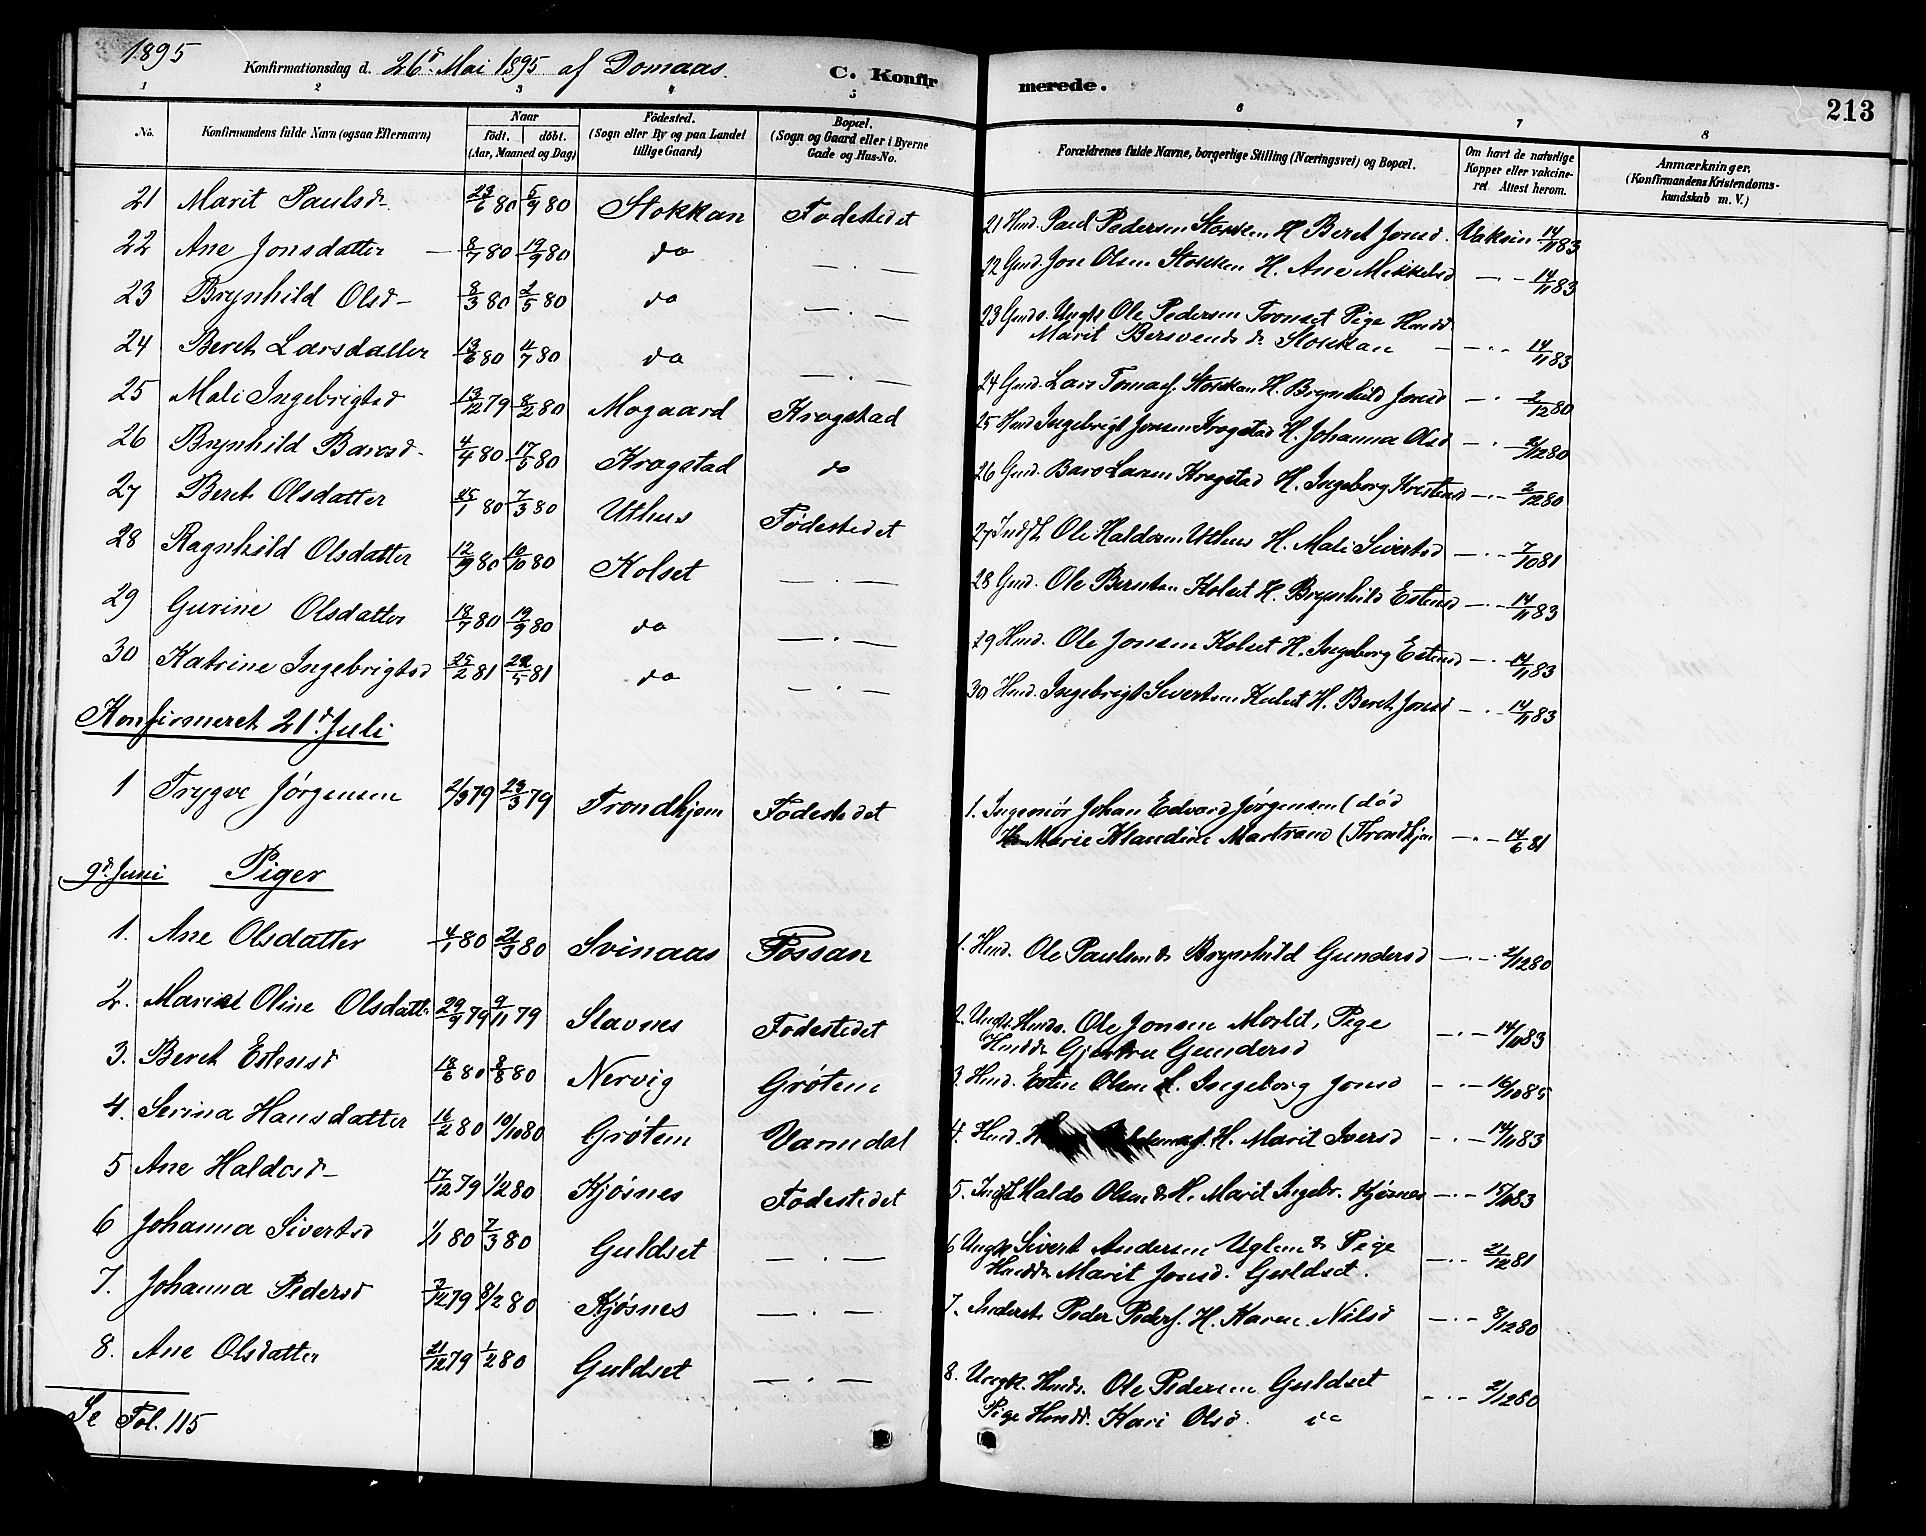 1895
Konfirmationsdag d. 26de Mai 1895 af Domaas. C. Konfirmerede. 213
1 2 3 4 5 6 7 8
No. Konfirmandens fulde Navn (ogsaa Efternavn) Naar født. døbt. (Aar, Maaned og Dag) Fødested. (Sogn eller By og paa Landet tillige Gaard) Bopæl. (Sogn og Gaard eller i Byerne Gade og Hus-No. Forældrenes fulde Navne, borgerlige Stilling (Næringsvei) og Bopæl. Om havt de naturlige Kopper eller vakcineret. Attest herom. Anmærkninger. (Konfirmandens Kristendomskundskab m. V.)
21 Marit Paulsd. 23/6 80 5/9 80 Stokkan Fødestedet 21 Hmd. Paul Pedersen Stokkan H. Beret Jonsd. Vaksin 14/11 83
22 Ane Jonsdatter 8/7 80 19/9 80 do — . — 22 Gmd. Jon Olsen Stokkan H. Ane Mikkelsd — - 14/11 83
23 Brynhild Olsd- 8/3 80 2/5 80 do — . — 23 Gmds. Ungk Ole Pedersen Tronset Pige Hmdd
Marit Bersvends d. Stokkan — - . - 14/11 83
24 Beret Larsdatter 13/6 80 11/7 80 do — . — 24 Gmd. Lars Tomasf. Stokkan H. Brynhild Jonsd — . 2/12 80
25 Mali Ingebrigtsd 13/12 79 8/2 80 Mogaard Krogstad 25 Hmd Ingebrigt Jonsen Krogstad H. Johanna Olsd — . 2/12 80
26 Brynhild Barosd. 4/4 80 17/5 80 Krogstad do 26 Gmd. Baro Larsen Krogstad H. Ingeborg Kristensd — . - 2/12 80
27 Beret Olsdatter 25/1 80 7/3 80 Uthus Fødestedet 27 Indst. Ole Haldosen Uthus H. Mali Sivertsd — . - 7/10 81
28 Ragnhild Olsdatter 12/9 80 10/10 80 Kolset — . — 28 Gmd. Ole Berntsen Kolset H. Brynhild Estensd — . - 14/11 83
29 Gurine Olsdatter 18/7 80 19/9 80 do — . — 29 Hmd. Ole Jonsen Kolset H. Ingeborg Estensd — . 14/11 83
30 Katrine Ingebrigtsd 25/2 81 22/5 81 do — . — 30 Hmd. Ingebrigt Sivertsen Kolset H. Beret Jonsd — . 14/11 83
Konfirmeret 21d. Juli
1 Trygve Jørgensen 2/3 79 23/3 79 Trondhjem Fødestedet 1. Ingeniør Johan Edvard Jørgensen (død
Marie Klaudine Martrand (Trondhjem — . - 14/6 81
9d. Juni Piger
1. Ane Olsdatter 4/1 80 21/3 80 Svinaas Fossan 1. Hmd. Ole Paulsen & Brynhild Gundersd — . 2/12 80
2. Marie Oline Olsdatt. 29/9 79 9/11 79 Slavnes Fødestedet 2. Ungk. Hmds. Ole Jonsen Moslet, Pige
Hmdd Gjertru Gundersd — . - 14/11 83
3. Beret Estensd 18/6 80 8/8 80 Nervig Grøtem 3. Hmd. Esten Olsen H. Ingeborg Jonsd — . - 16/10 85
4. Serina Hansdatter 16/2 80 10/10 80 Grøtem Varmdal 4. Hmd. H. Marit Iversd — . - 14/11 83
5 Ane Haldosd- 17/12 79 1/2 80 Kjøsnes Fødestedet 5. Indst. Haldo Olsen & H. Marit Ingebr. Kjøsnes — . - 15/11 83
6 Johanna Sivertsd 1/1 80 7/3 80 Guldset — . — 6 Ungk Sivert Andersen Uglem & Pige
Hmdd. Marit Jonsd. Guldset. — . - 21/12 81
7. Johanna Pedersd 7/12 79 8/2 80 Kjøsnes — . — 7. Inderst. Peder Pedersf. H. Karen Nilsd — . - 8/12 80
8. Ane Olsdatter 21/12 79 1/2 80 Guldset — . — 8. Ungk. Hmds. Ole Pedersen Guldset
Pige Hmdd. Kari Olsd. do — . - 2/12 80
Se Fol. 115